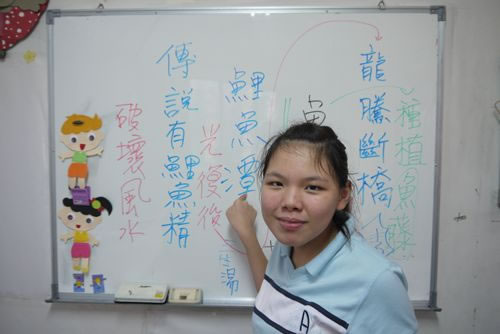 種植魚藤
龍騰斷橋
魚
鯉魚潭
光復後
傳說有鯉魚精
破壞風水
A